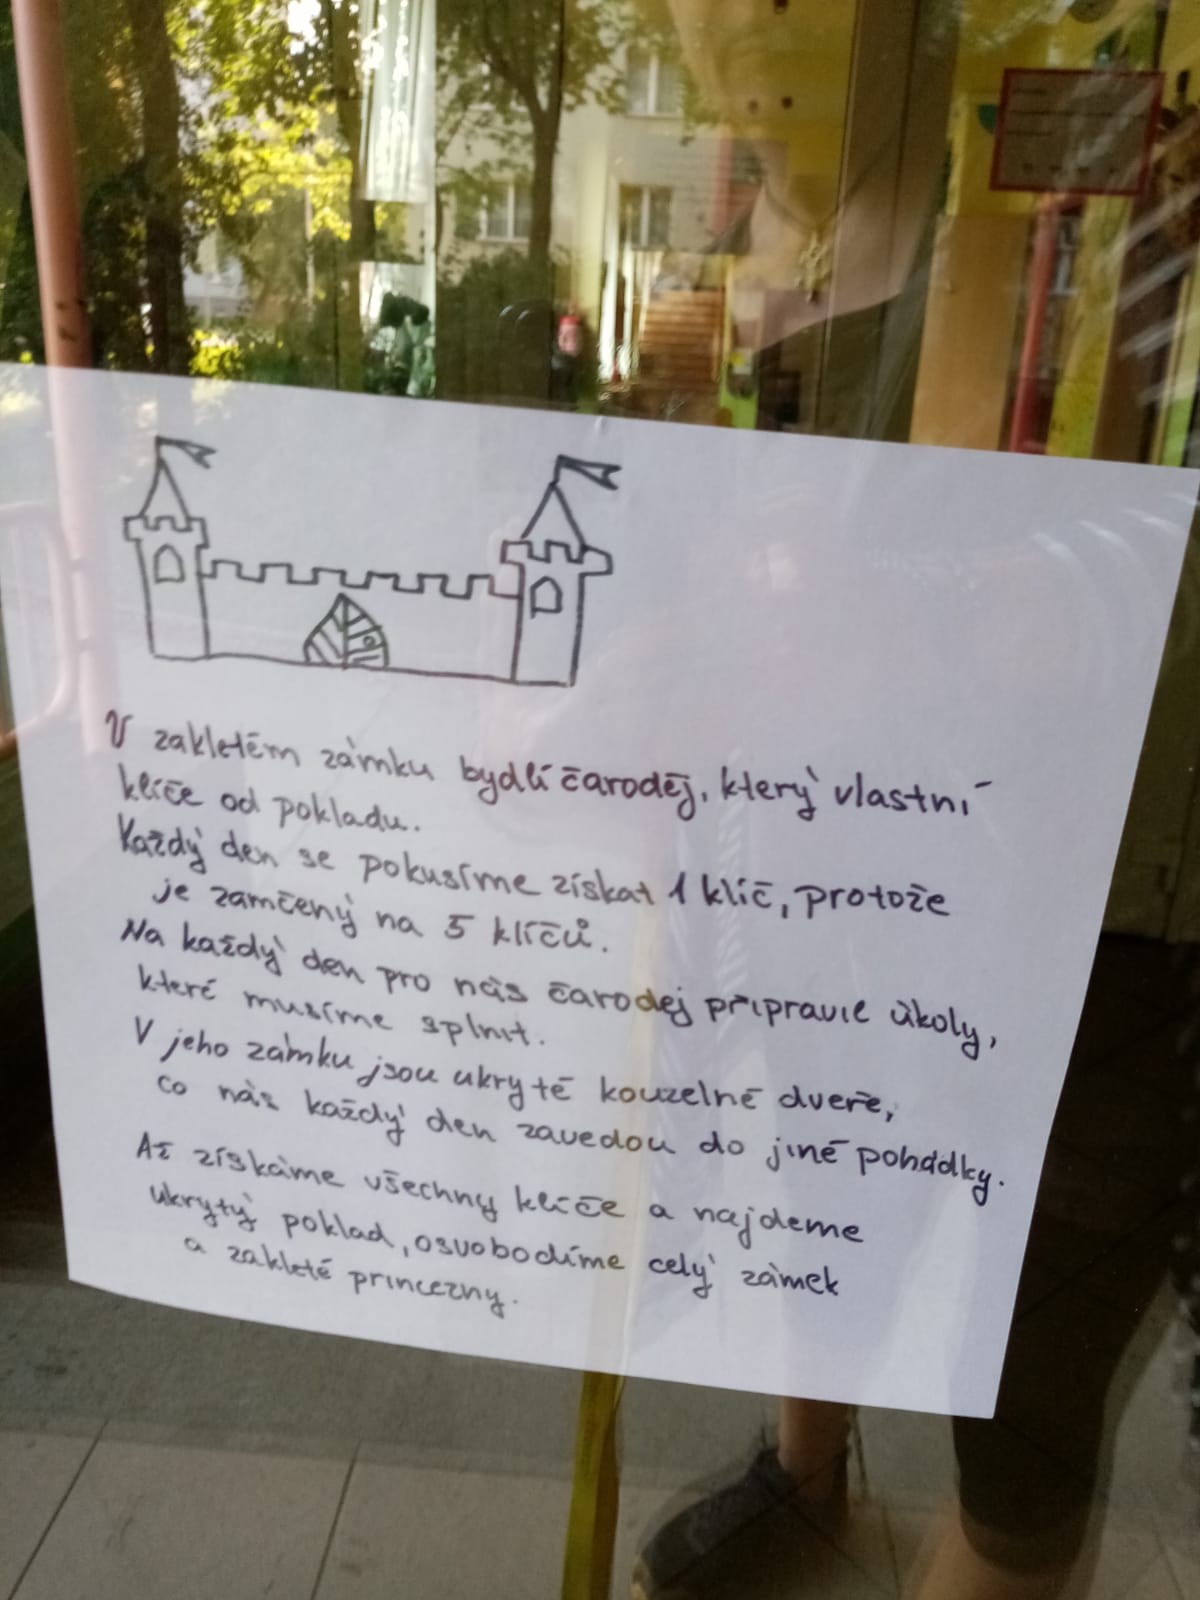 V zakletém zámku bydlí čaroděj, který vlastní
klíče od pokladu.
Každý den se pokusíme získat 1 klíč, protože
je zamčený na 5 klíčů.
Na každý den pro nás čarodej připravil úkoly,
které musíme splnit.
V jeho zámku jsou ukryté kouzelné dveře,
co nás každý den zavedou do jiné pohádky.
Až získáme všechny klíče a najdeme
ukrytý poklad, osvobodíme celý zámek
a zakleté princezny.